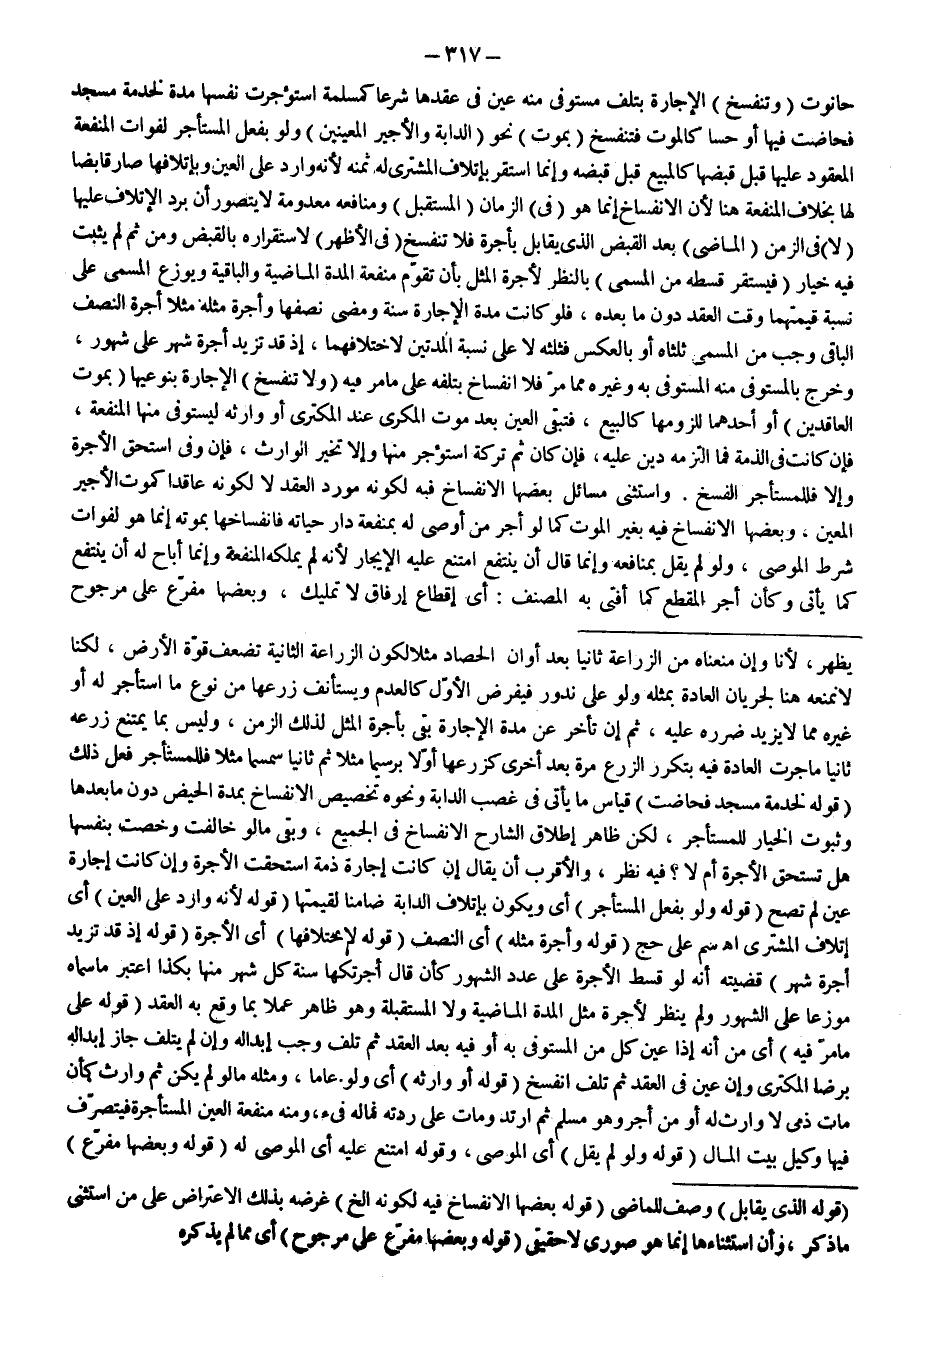 – ٣١٧ –
حانوت ( وتنفسخ ) الإجارة بتلف مستوفى منه عين فى عقدها شرعا كمسلمة استؤجرت نفسها مدة لخدمة مسجد
فحاضت فيها أو حسا كالموت فتنفسخ ( بموت ) نحو ( الدابة والأجير المعينين ) ولو بفعل المستأجر لفوات المنفعة
المعقود عليها قبل قبضها كالمبيع قبل قبضه وإنما استقر بإتلاف المشترى له ثمنه لأنه وارد على العين وبإتلافها صار قابضا
لها بخلاف المنفعة هنا لأن الانفساخ إنما هو ( فى ) الزمان ( المستقبل ) ومنافعه معدومة لا يتصور أن يرد الإتلاف عليها
( لا ) فى الزمن ( الماضى ) بعد القبض الذى يقابل بأجرة فلا تنفسخ ( فى الأظهر ) لاستقراره بالقبض ومن ثم لم يثبت
فيه خيار ( فيستقر قسطه من المسمى ) بالنظر لأجرة المثل بأن تقوّم منفعة المدة الماضية والباقية ويوزع المسمى على
نسبة قيمتهما وقت العقد دون ما بعده ، فلو كانت مدة الإجارة سنة ومضى نصفها وأجرة مثله مثلا أجرة النصف
الباقى وجب من المسمى ثلثاه أو بالعكس فثلثه لا على نسبة المدتين لاختلافهما ، إذ قد تزيد أجرة شهر على شهور ،
وخرج بالمستوفى منه المستوفى به وغيره مما مرّ فلا انفساخ بتلفه على مامر فيه ( ولا تنفسخ ) الإجارة بنوعيها ( بموت
العاقدين ) أو أحدهما للزومها كالبيع ، فتبقى العين بعد موت المكرى عند المكترى أو وارثه ليستوفى منها المنفعة ،
فإن كانت فى الذمة فما التزمه دين عليه ، فإن كان ثم تركة استؤجر منها وإلا تخير الوارث ، فإن وفى استحق الأجرة
وإلا فللمستأجر الفسخ . واستثنى مسائل بعضها الانفساخ فيه لكونه مورد العقد لا لكونه عاقدا كموت الأجير
المعين ، وبعضها الانفساخ فيه بغير الموت كما لو أجر من أوصى له بمنفعة دار حياته فانفساخها بموته إنما هو لفوات
شرط الموصى ، ولو لم يقل بمنافعه وإنما قال أن ينتفع امتنع عليه الإيجار لأنه لم يملكه المنفعة وإنما أباح له أن ينتفع
كما يأتى وكأن أجر المقطع كما أفتى به المصنف : أى إقطاع إرفاق لا تمليك ، وبعضها مفرّع على مرجوح
يظهر ، لأنا وإن منعناه من الزراعة ثانيا بعد أوان الحصاد مثلا لكون الزراعة الثانية تضعف قوّة الأرض ، لكنا
لانمنعه هنا لجريان العادة بمثله ولو على ندور فيفرض الأوّل كالعدم ويستأنف زرعها من نوع ما استأجر له أو
غيره مما لا يزيد ضرره عليه ، ثم إن تأخر عن مدة الإجارة بقى بأجرة المثل لذلك الزمن ، وليس بما يمتنع زرعه
ثانيا ماجرت العادة فيه بتكرر الزرع مرة بعد أخرى كزرعها أوّلا برسيما مثلا ثم ثانيا سمسما مثلا فللمستأجر فعل ذلك
( قوله لخدمة مسجد فحاضت ) قياس ما يأتى فى غصب الدابة ونحوه تخصيص الانفساخ بمدة الحيض دون مابعدها
وثبوت الخيار للمستأجر ، لكن ظاهر إطلاق الشارح الانفساخ فى الجميع ، وبقى مالو خالفت وخدمت بنفسها
هل تستحق الأجرة أم لا ؟ فيه نظر ، والأقرب أن يقال إن كانت إجارة ذمة استحقت الأجرة وإن كانت إجارة
عين لم تصح ( قوله ولو بفعل المستأجر ) أى ويكون بإتلاف الدابة ضامنا لقيمتها ( قوله لأنه وارد على العين ) أى
إتلاف المشترى اه سم على حج ( قوله وأجرة مثله ) أى النصف ( قوله لاختلافها ) أى الأجرة ( قوله إذ قد تزيد
أجرة شهر ) قضيته أنه لو قسط الأجرة على عدد الشهور كأن قال أجرتكها سنة كل شهر منها بكذا اعتبر ماسماه
موزعا على الشهور ولم ينظر لأجرة مثل المدة الماضية ولا المستقبلة وهو ظاهر عملا بما وقع به العقد ( قوله على
مامرّ فيه ) أى من أنه إذا عين كل من المستوفى به أو فيه بعد العقد ثم تلف وجب إبداله وإن لم يتلف جاز إبداله
برضا المكترى وإن عين فى العقد ثم تلف انفسخ ( قوله أو وارثه ) أى ولو عاما ، ومثله مالو لم يكن ثم وارث كأن
مات ذمى لا وارث له أو من أجر وهو مسلم ثم ارتد ومات على ردته فماله فىء ، ومنه منفعة العين المستأجرة فيتصرّف
فيها وكيل بيت المال ( قوله ولو لم يقل ) أى الموصى ، وقوله امتنع عليه أى الموصى له ( قوله وبعضها مفرّع )
( قوله الذى يقابل ) وصف للماضى ( قوله بعضها الانفساخ فيه لكونه الخ ) غرضه بذلك الاعتراض على من استثنى
ماذكر ، وأن استثناءها إنما هو صورى لا حقيقى ( قوله وبعضها مفرّع على مرجوح ) أى مما لم يذكره